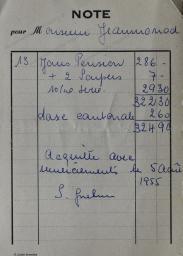 NOTE
pour M onsieur Jeanmonod
13 Jours Pension 286.-
+ 2 Soupers 7.-
10% serv. 29 30
322 30
taxe cantonale 2 60
324 90
Acquitté avec
remerciements le 5 Août
1955